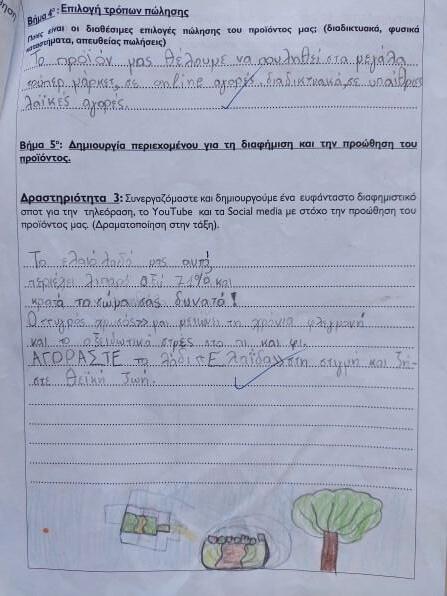 Βήμα 4ο: Επιλογή τρόπων πώλησης
Ποιες είναι οι διαθέσιμες επιλογές πώλησης του προϊόντος μας; (διαδικτυακά, φυσικά
καταστήματα, απευθείας πωλήσεις)
Το προϊόν μας θέλουμε να πουληθεί στα μεγάλα
σούπερ μάρκετ, σε online αγορές, διαδικτυακά, σε υπαίθριες
λαϊκές αγορές.
Βήμα 5ο: Δημιουργία περιεχομένου για τη διαφήμιση και την προώθηση του
προϊόντος.
Δραστηριότητα 3: Συνεργαζόμαστε και δημιουργούμε ένα ευφάνταστο διαφημιστικό
σποτ για την τηλεόραση, το YouTube και τα Social media με στόχο την προώθηση του
προϊόντος μας. (Δραματοποίηση στην τάξη).
Το ελαιόλαδό μας αυτό
περιέχει λιπαρά οξύ 71% και
κρατά το σώμα σας δυνατό!
Ο υγρός χρυσός μας μειώνει τη χρόνια φλεγμονή
και το οξειδωτικό στρες στο πι και φι.
ΑΓΟΡΑΣΤΕ το λάδι «Ελαΐδα» στη στιγμή και ζή-
στε θεϊκή ζωή.